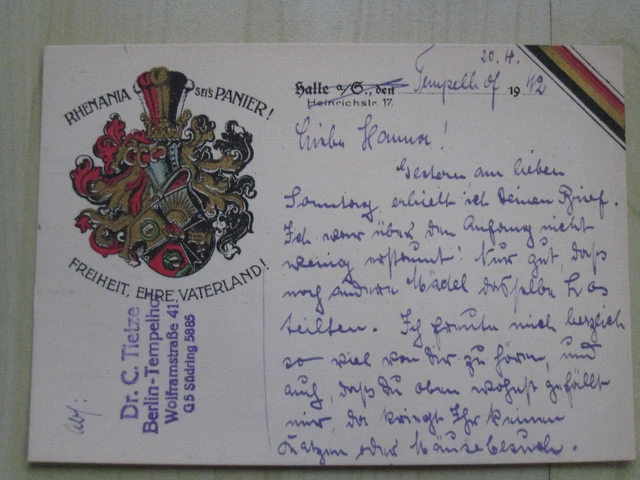 20.4.
RHENANIA SEI'S PANIER!
Halle a/S., den Tempelhof 1942
Heinrichstr. 17.
Liebe Hanna!
Gestern am lieben
Sonntag, erhielt ich deinen Brief.
Ich war über den Anfang nicht
wenig erstaunt! Nur gut, daß
noch andere Mädel dasselbe Los
teilten. Ich freute mich herzlich
so viel von dir zu hören, und
auch, daß du oben wohnst gefällt
mir, da kriegt Ihr keinen
Katzen oder Mäusebesuch.
FREIHEIT, EHRE, VATERLAND!
Abs:
Dr. C. Tietze
Berlin-Tempelho
Wolframstraße 41
G5 Südring 5885